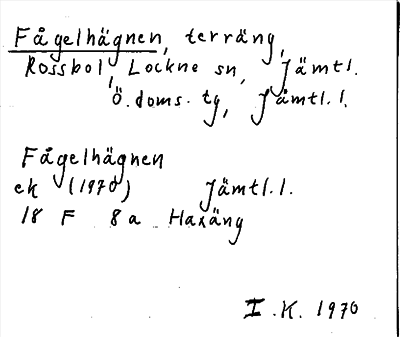 Fågelhägnen, terräng,
Rossbol, Lockne sn, Jämtl.
Ö. doms. tg, Jämtl. l.
Fågelhägnen
ek (1970) Jämtl. l.
18 F 8a Haxäng
I. K. 1970